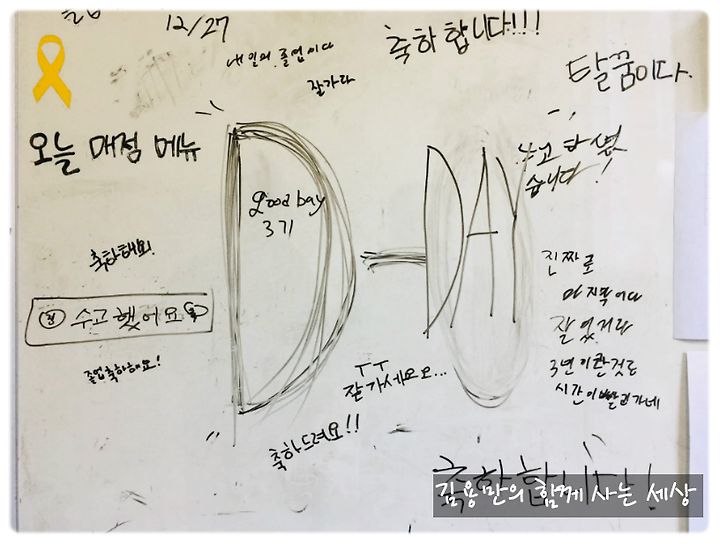 12/27
축하합니다!!!
내일의 졸업이다
잘가라
탈꿈이다.
오늘 매점 메뉴
D-DAY
Good bay
3기
수고하셨
습니다!
축하해요!
수고했어요
졸업축하해요!
진짜로
마지막이다
잘있거라
3년이란것도
시간이빨리가네
ㅜㅜ
잘가세요요...
축하드려요!!
축하합니다!
김용만의 함께 사는 세상